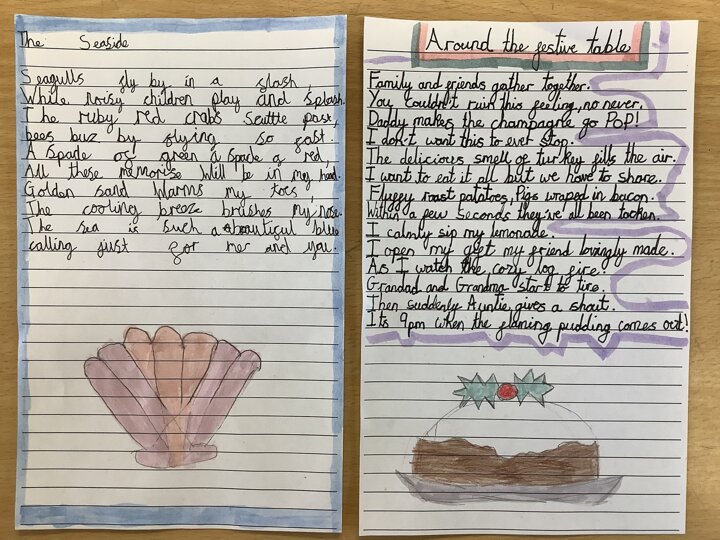 The Seaside
Seagulls fly by in a flash,
While noisy children play and splash.
The ruby red crabs scuttle past,
bees buz by flying so fast.
A spade of green a spade a red,
All these memorise will be in my head.
Golden sand warms my toes,
The cooling breeze brushes my nose.
The sea is such a beautiful blue
calling just for me and you.
Around the festive table
Family and friends gather together.
You couldn't ruin this feeling, no never.
Daddy makes the champagne go POP!
I don't want this to ever stop.
The delicious smell of turkey fills the air.
I want to eat it all but we have to share.
Fluffy roast potatoes, Pigs wraped in bacon.
Within a few seconds they've all been tacken.
I calmly sip my lemonade.
I open my gift my friend lovingly made.
As I watch the cozy log fire.
Grandad and Grandma start to tire.
Then suddenly Auntie gives a shout.
Its 9pm when the flaming pudding comes out!